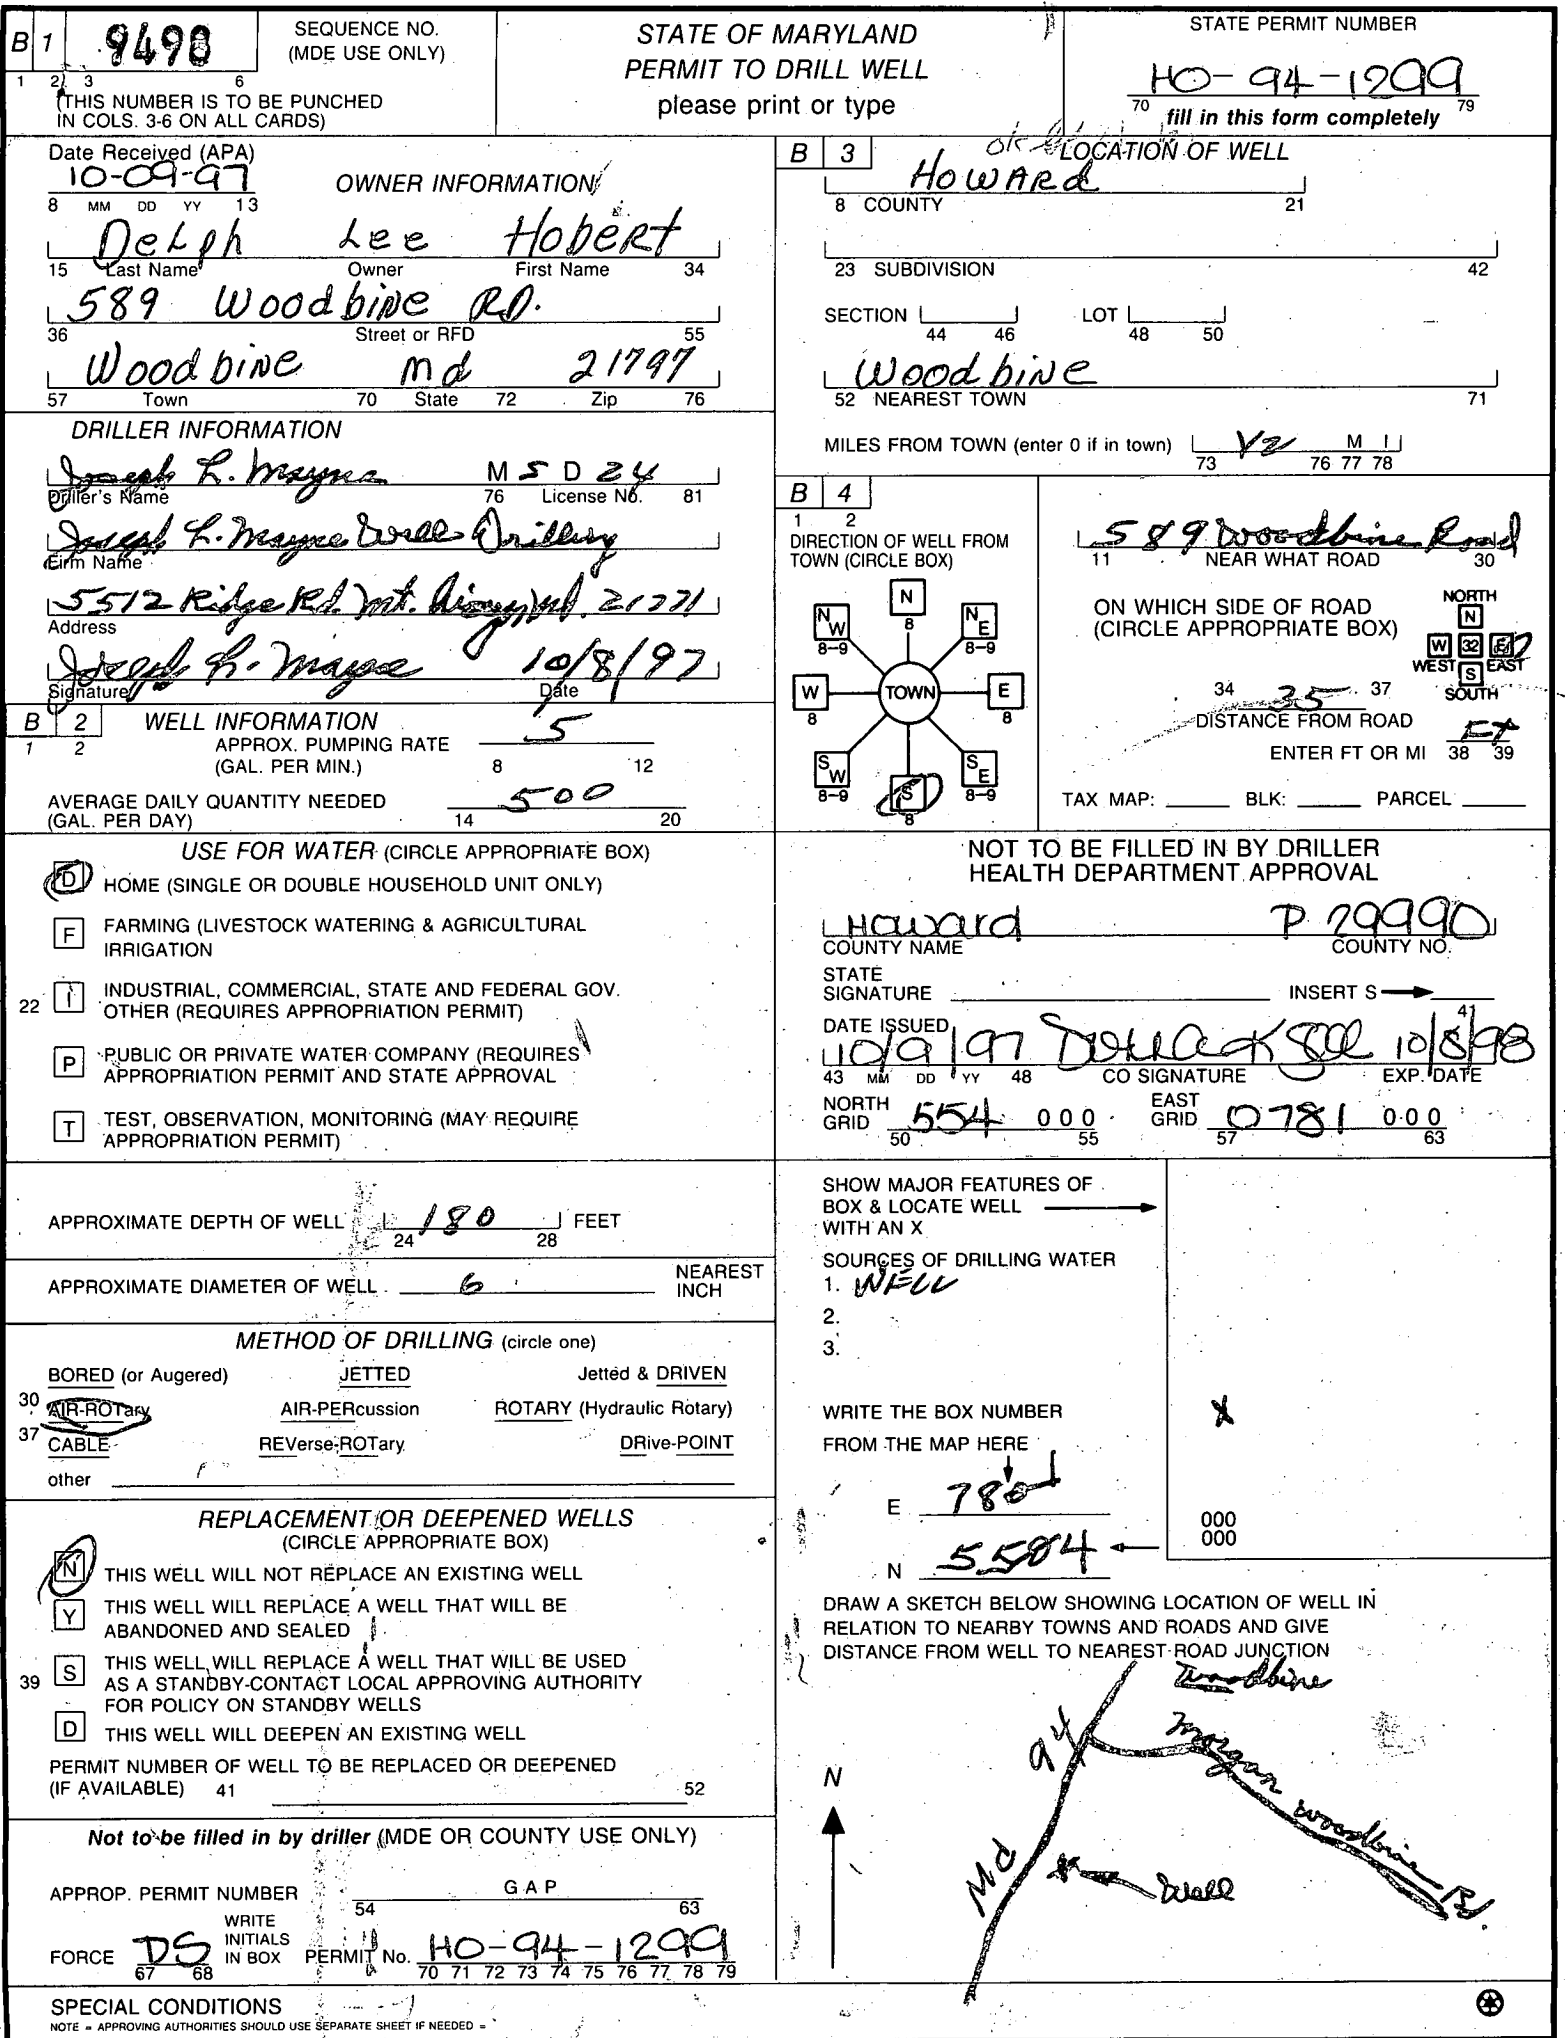 B 1 9498 SEQUENCE NO. (MDE USE ONLY)
1 2 3 6
(THIS NUMBER IS TO BE PUNCHED
IN COLS. 3-6 ON ALL CARDS)
STATE OF MARYLAND
PERMIT TO DRILL WELL
please print or type
STATE PERMIT NUMBER
HO-94-1299
70 fill in this form completely 79
Date Received (APA)
10-09-97
8 MM DD YY 13
OWNER INFORMATION
Delph Lee Hobert
15 Last Name Owner First Name 34
589 Woodbine RD.
36 Street or RFD 55
Woodbine Md 21797
57 Town 70 State 72 Zip 76
DRILLER INFORMATION
Joseph L. Mayne M S D 24
Driller's Name 76 License No. 81
Joseph L. Mayne Well Drilling
Firm Name
5512 Ridge Rd. Mt. Airy, Md. 21771
Address
Joseph L. Mayne 10/8/97
Signature Date
B 2 WELL INFORMATION
1 2
APPROX. PUMPING RATE 5
(GAL. PER MIN.) 8 12
AVERAGE DAILY QUANTITY NEEDED 500
(GAL. PER DAY) 14 20
USE FOR WATER (CIRCLE APPROPRIATE BOX)
D HOME (SINGLE OR DOUBLE HOUSEHOLD UNIT ONLY)
F FARMING (LIVESTOCK WATERING & AGRICULTURAL
IRRIGATION
22 I INDUSTRIAL, COMMERCIAL, STATE AND FEDERAL GOV.
OTHER (REQUIRES APPROPRIATION PERMIT)
P PUBLIC OR PRIVATE WATER COMPANY (REQUIRES
APPROPRIATION PERMIT AND STATE APPROVAL
T TEST, OBSERVATION, MONITORING (MAY REQUIRE
APPROPRIATION PERMIT)
APPROXIMATE DEPTH OF WELL 180 FEET
24 28
APPROXIMATE DIAMETER OF WELL 6 NEAREST
INCH
METHOD OF DRILLING (circle one)
BORED (or Augered) JETTED Jetted & DRIVEN
30 AIR-ROTary AIR-PERcussion ROTARY (Hydraulic Rotary)
37 CABLE REVerse-ROTary DRive-POINT
other
REPLACEMENT OR DEEPENED WELLS
(CIRCLE APPROPRIATE BOX)
N THIS WELL WILL NOT REPLACE AN EXISTING WELL
Y THIS WELL WILL REPLACE A WELL THAT WILL BE
ABANDONED AND SEALED
39 S THIS WELL WILL REPLACE A WELL THAT WILL BE USED
AS A STANDBY-CONTACT LOCAL APPROVING AUTHORITY
FOR POLICY ON STANDBY WELLS
D THIS WELL WILL DEEPEN AN EXISTING WELL
PERMIT NUMBER OF WELL TO BE REPLACED OR DEEPENED
(IF AVAILABLE) 41 52
Not to be filled in by driller (MDE OR COUNTY USE ONLY)
APPROP. PERMIT NUMBER G A P
54 63
FORCE DS WRITE INITIALS IN BOX PERMIT No. HO-94-1299
67 68 70 71 72 73 74 75 76 77 78 79
SPECIAL CONDITIONS
NOTE = APPROVING AUTHORITIES SHOULD USE SEPARATE SHEET IF NEEDED =
B 3 ok LOCATION OF WELL
Howard
8 COUNTY 21
23 SUBDIVISION 42
SECTION LOT
44 46 48 50
Woodbine
52 NEAREST TOWN 71
MILES FROM TOWN (enter 0 if in town) 1/2 M I
73 76 77 78
B 4
1 2
DIRECTION OF WELL FROM
TOWN (CIRCLE BOX)
N
8
NW NE
8-9 8-9
W TOWN E
8 8
SW SE
8-9 S 8-9
8
589 Woodbine Road
11 NEAR WHAT ROAD 30
ON WHICH SIDE OF ROAD
(CIRCLE APPROPRIATE BOX)
NORTH
N
W 32 E
WEST EAST
S
SOUTH
34 35 37
DISTANCE FROM ROAD
ENTER FT OR MI FT
38 39
TAX MAP: BLK: PARCEL
NOT TO BE FILLED IN BY DRILLER
HEALTH DEPARTMENT APPROVAL
Howard P 29990
COUNTY NAME COUNTY NO.
STATE
SIGNATURE INSERT S
41
DATE ISSUED
10/9/97 10/8/98
43 MM DD YY 48 CO SIGNATURE EXP. DATE
NORTH GRID 554 000 EAST GRID 0781 000
50 55 57 63
SHOW MAJOR FEATURES OF
BOX & LOCATE WELL
WITH AN X
SOURCES OF DRILLING WATER
1. WELL
2.
3.
X
WRITE THE BOX NUMBER
FROM THE MAP HERE
E
N
000
000
DRAW A SKETCH BELOW SHOWING LOCATION OF WELL IN
RELATION TO NEARBY TOWNS AND ROADS AND GIVE
DISTANCE FROM WELL TO NEAREST ROAD JUNCTION
Woodbine
Md 94
Morgan Woodbine Rd.
N
Well